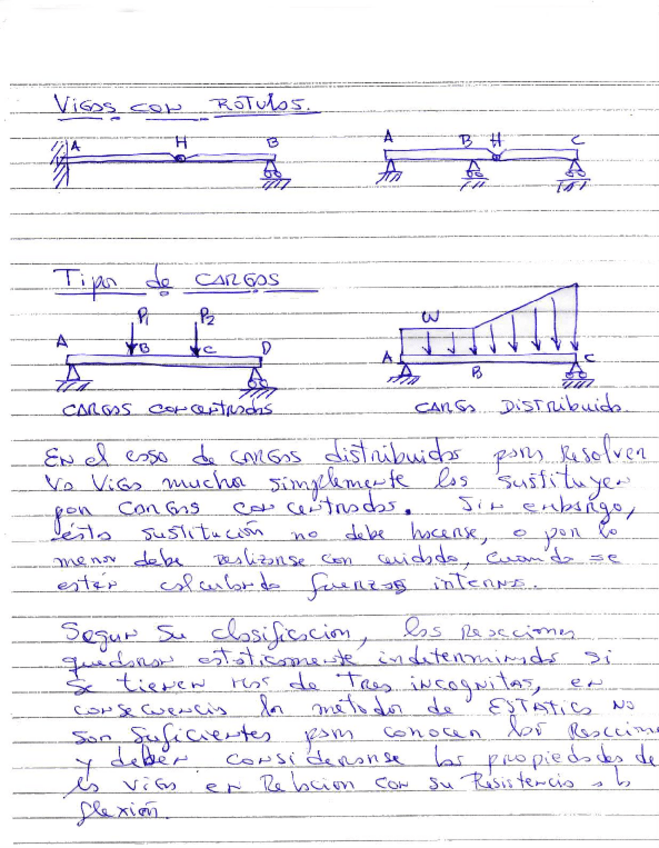 Vigas con Rótulas.
A H B A B H C
Tipos de cargas
P1 P2 W
A B C D A B C
cargas concentradas carga Distribuida
En el caso de cargas distribuidas para resolver
la viga muchos simplemente las sustituyen
por cargas concentradas. Sin embargo,
ésta sustitución no debe hacerse, o por lo
menos debe realizarse con cuidado, cuando se
están calculando fuerzas internas.
Segun su clasificacion, las reacciones
quedaran estáticamente indeterminada si
se tienen mas de tres incognitas, en
consecuencia los metodos de ESTATICA NO
son suficientes para conocer las Reacciones
y deben considerarse las propiedades de
la viga en Relacion con su Resistencia a la
flexión.